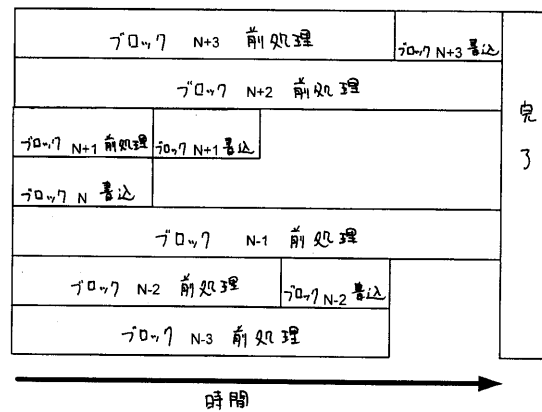 ブロック N+3 前処理
ブロック N+3 書込
ブロック N+2 前処理
ブロック N+1 前処理
ブロック N+1 書込
ブロック N 書込
ブロック N-1 前処理
ブロック N-2 前処理
ブロック N-2 書込
ブロック N-3 前処理
完了
時間